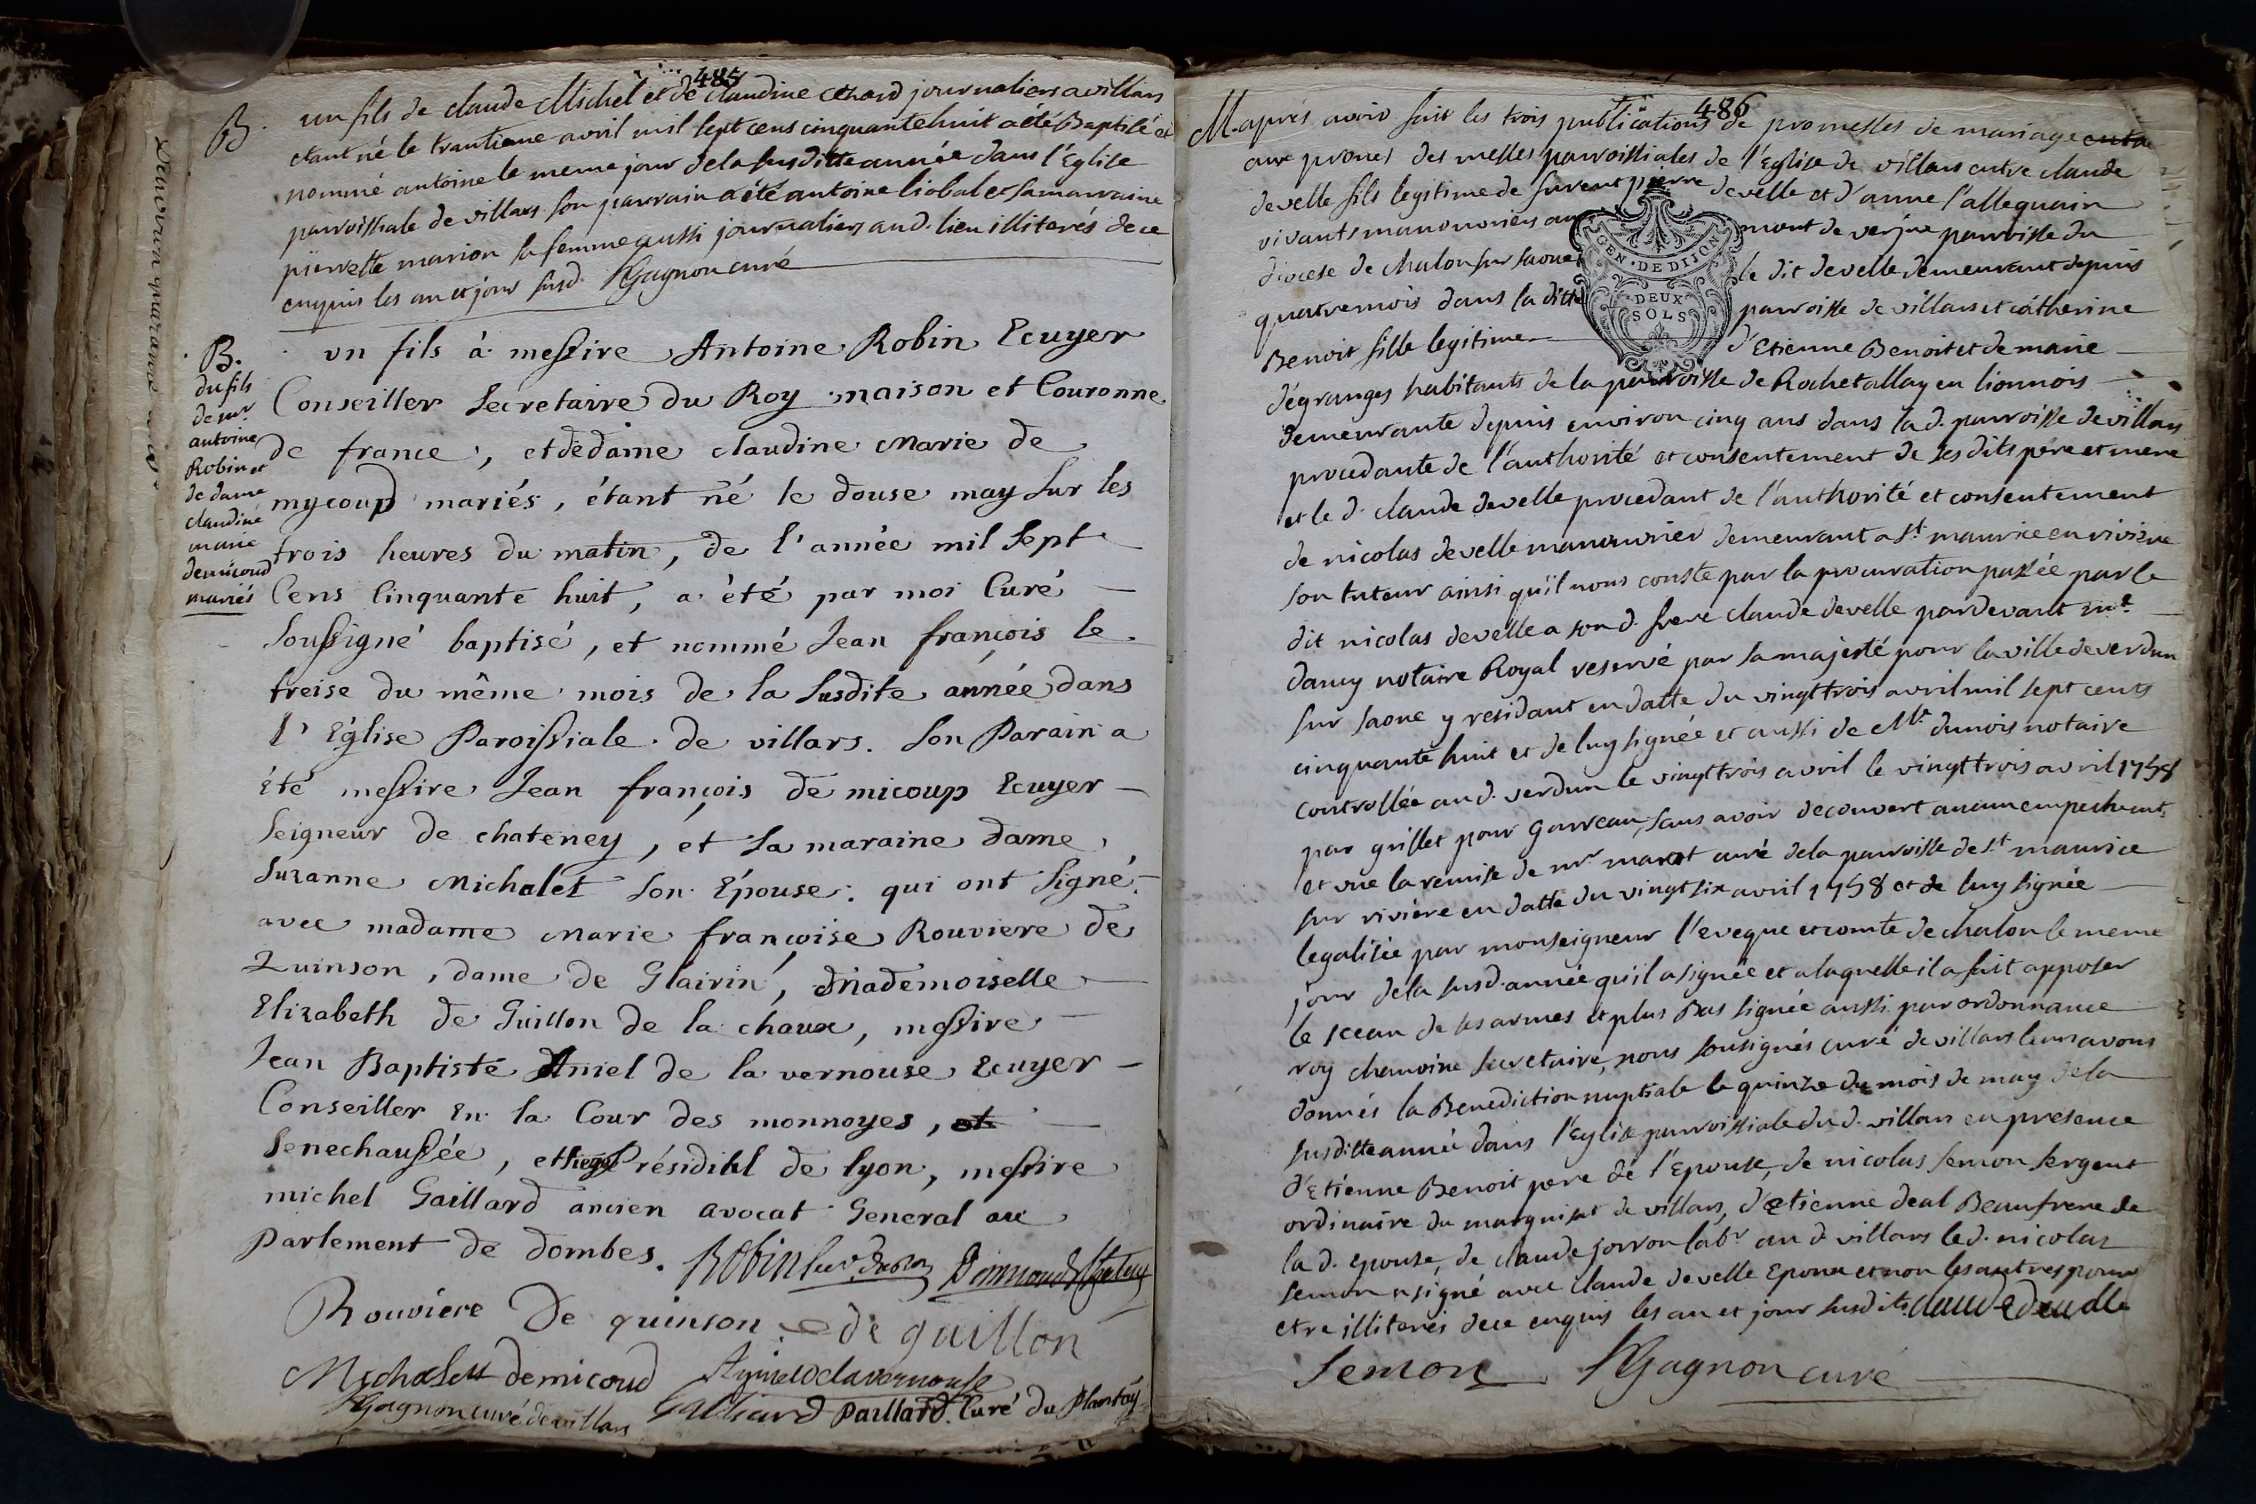 485
B. un fils de claude Michel et de claudine journaliers a villars
etant né le trantieme avril mil sept cens cinquante huit a été Baptisé et
nommé antoine le meme jour de la susditte année dans l'Eglise
parroissiale de villars son parrain a été antoine liobal et sa marraine
pierrette marion sa femme aussi journaliers aud. lieu illiterés de ce
enquis les an et jour susd. Gagnon curé
B.
du fils
de sur
antoine
Robin et
de dame
claudine
marie
demicoud
mariés
un fils à messire Antoine Robin Ecuyer
Conseiller Secretaire du Roy maison et Couronne
de france, et de dame claudine Marie de
mycoup mariés, étant né le douse may sur les
trois heures du matin, de l'année mil sept
Cens Cinquante huit, a été par moi Curé
soussigné baptisé, et nommé Jean françois le
treise du même mois de la susdite année dans
l'Eglise Paroissiale de villars. Son Parain a
été messire Jean françois de micoup Ecuyer
Seigneur de chateney, et sa maraine dame
Suzanne Michalet son Epouse: qui ont signé
avec madame Marie françoise Rouviere de
Quinson, dame de Glairin, Mademoiselle
Elizabeth de Guillon de la chaux, messire
Jean Baptiste Aniel de la vernouse Ecuyer
Conseiller En la Cour des monnoyes, et
Senechaussée, et siege Présidial de lyon, messire
michel Gaillard ancien avocat General au
Parlement de dombes. Robin
Rouviere De quinson de guillon
Michalet demicoud Aniel de la vernouse
Gagnon curé de villars Gaillard Paillard Curé du Plantay
486
M. après avoir fait les trois publications de promesses de mariage entre
aux prones des messes parroissiales de l'Eglise de villars entre claude
devella fils legitime de furent pierre devella et d'anne l'allequain
vivants manouvriers au mont de verjux parroisse du
diocese de chalon sur saone le dit devella demeurant depuis
quatre mois dans la ditte parroisse de villars et catherine
Benoit fille legitime d'Etienne Benoit et de marie
dégranges habitants de la parroisse de Rochetallay en lionnois
demeurante depuis environ cinq ans dans la d. parroisse de villars
procedante de l'authorité et consentement de ses dits père et mere
et le d. claude devella procedant de l'authorité et consentement
de nicolas devella manouvrier demeurant a St. maurice en riviere
son tuteur ainsi qu'il nous conste par la procuration passée par le
dit nicolas devella a son d. frere claude devella pardevant me.
dancy notaire Royal reservé par sa majesté pour la ville de verdun
sur saone y residant en datte du vingt trois avril mil sept cents
cinquante huit et de luy signée et aussi de Me. dunois notaire
controllée aud. verdun le vingt trois avril le vingt trois avril 1758
par guillet pour gourreau, sans avoir decouvert aucun empechement
et vue la remise de mr. curé de la parroisse de St. maurice
sur riviere en datte du vingt six avril 1758 et de luy signée
legalisée par monseigneur l'eveque et comte de chalon le meme
jour de la susd. année qu'il a signée et a laquelle il a fait apposer
le sceau de ses armes et plus Bas signée aussi par ordonnance
roy chanoine secretaire, nous sousignés curé de villars leurs avons
donnés la Benediction nuptiale le quinze du mois de may de la
susditte année dans l'Eglise parroissiale du d. villars en presence
d'Etienne Benoit pere de l'Epouse, de nicolas semon sergent
ordinaire du marquisat de villars, d'etienne deal Beaufrere de
la d. epouse, de claude jorron labr. au d. villars le d. nicolas
semon a signé avec claude devella Epoux et non les autres pour
etre illiterés de ce enquis les an et jour susdits claude devella
semon Gagnon curé
GEN. DE DIJON
DEUX
SOLS